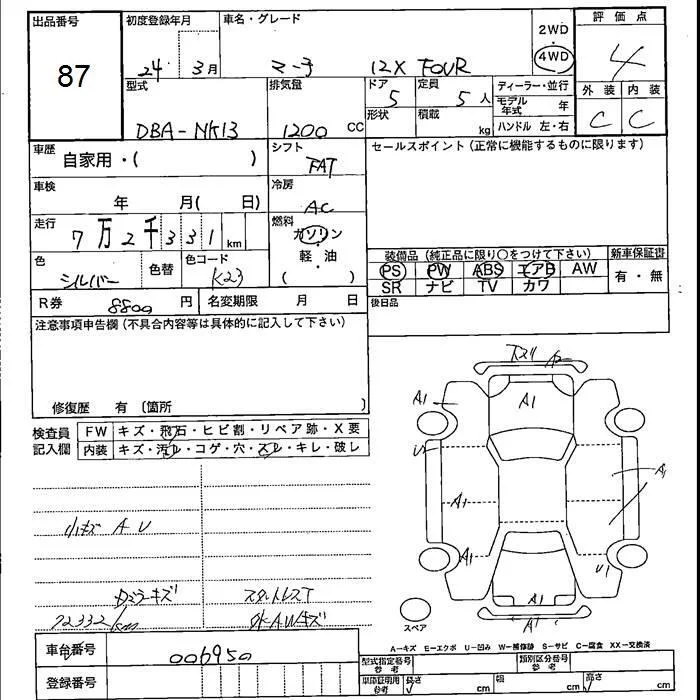 出品番号
87
初度登録年月
24 3月
車名・グレード
マーチ 12X FOUR
2WD
・
4WD
評価点
4
外装 内装
C C
型式
DBA-NK13
排気量
1200 CC
ドア
5
形状
定員
5人
積載
kg
ディーラー・並行
モデル年式 年
ハンドル 左・右
車歴
自家用・( )
シフト
FAT
セールスポイント(正常に機能するものに限ります)
車検
年 月( 日)
冷房
AC
走行
7万2千331km
燃料
ガソリン
軽・油
( )
色
シルバー
色替
色コード
K23
装備品(純正品に限り○をつけて下さい)
PS PW ABS エアB AW
SR ナビ TV カワ
新車保証書
有・無
R券 8800 円
名変期限 月 日
後日品
注意事項申告欄(不具合内容等は具体的に記入して下さい)
修復歴 有 〔箇所 〕
検査員
記入欄
FW キズ・飛石・ヒビ割・リペア跡・X要
内装 キズ・汚レ・コゲ・穴・スレ・キレ・破レ
小キズ A U
ミラーキズ
72332km
スタットレスT
AWキズ
下スリ
A1
A1
U1
A1
A1
A1
U1
A1
A1
スペア
A-キズ E-エクボ U-凹み W-補修跡 S-サビ C-腐食 XX-交換済
車台番号
006950
登録番号
型式指定番号
参考
類別区分番号
参考
車庫証明用
参考
長さ cm
幅 cm
高さ cm